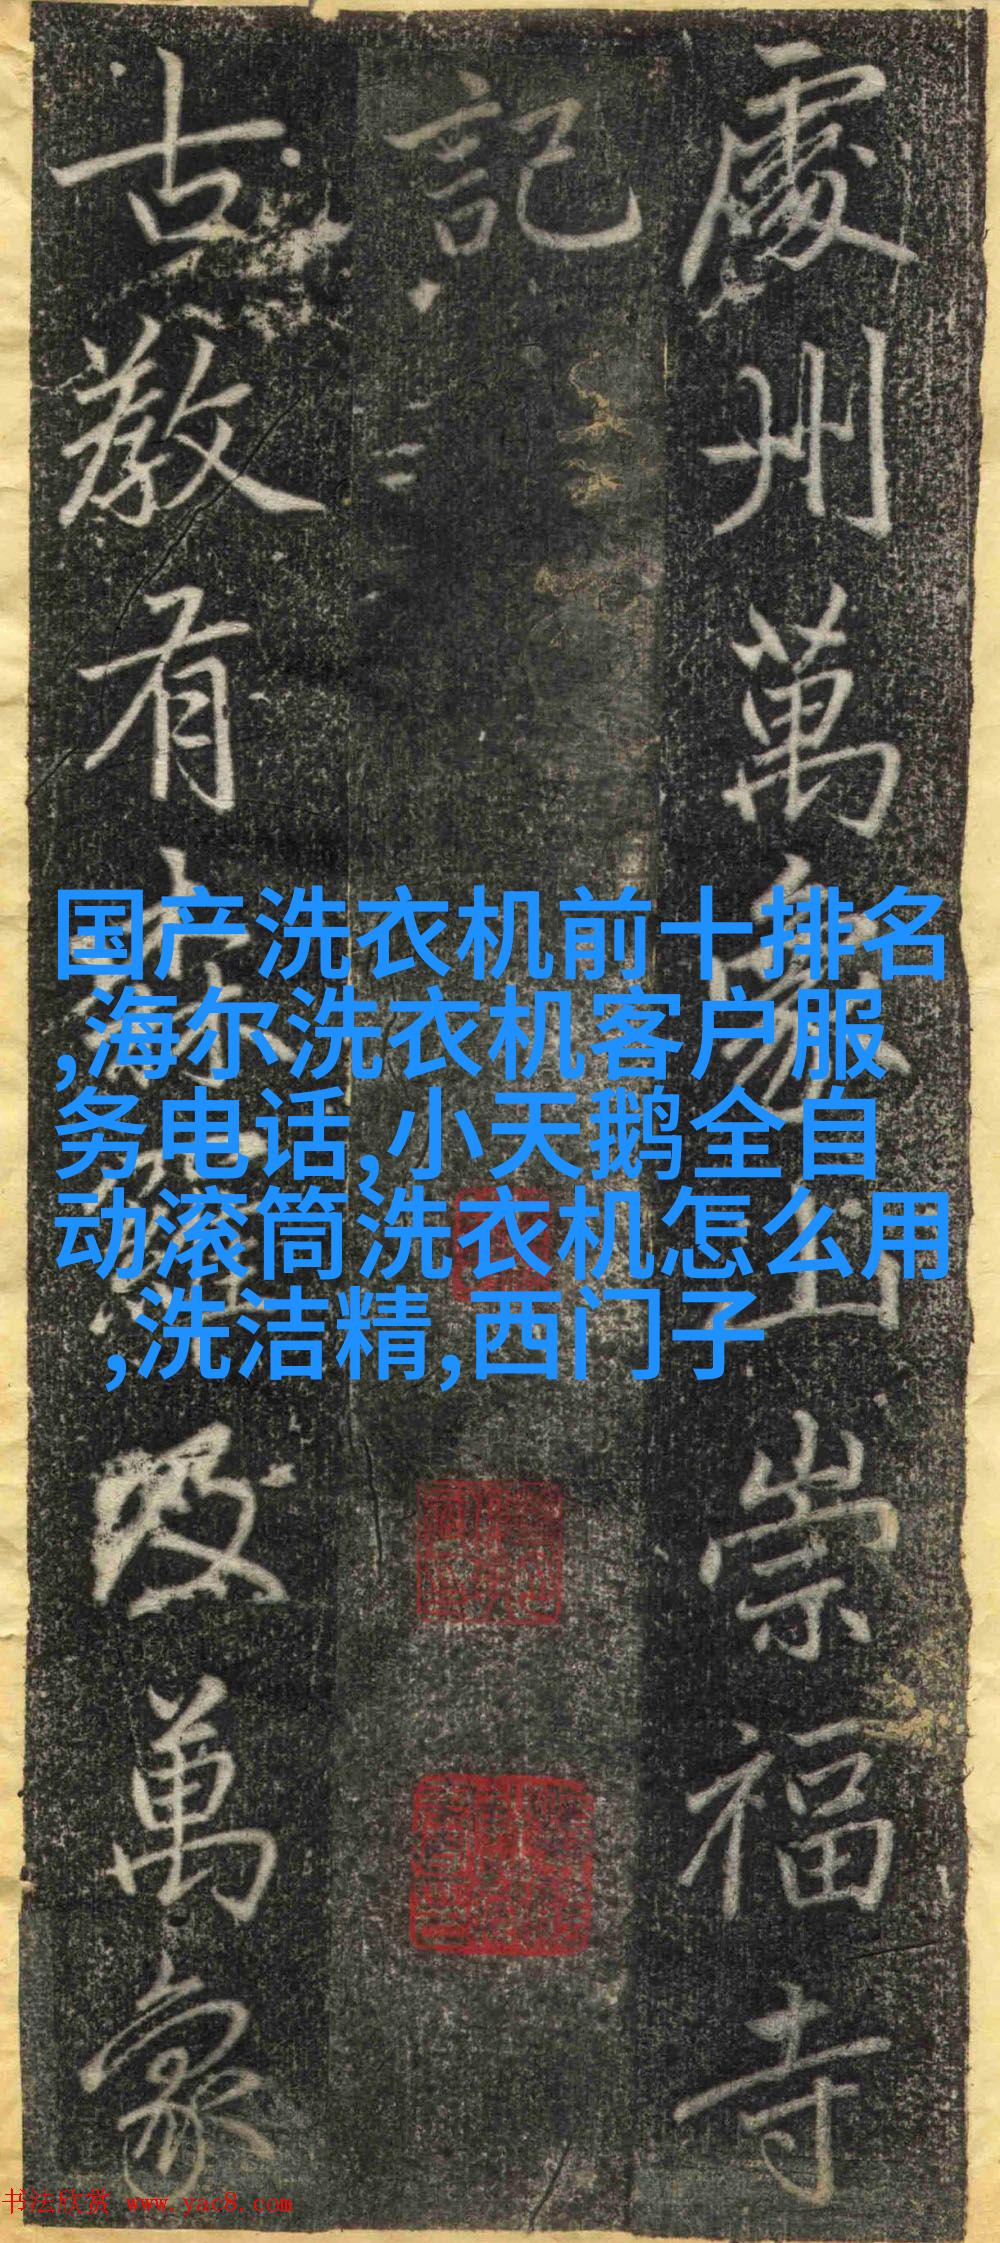 處州萬象山崇福寺
記
古教有森羅及萬象
国产洗衣机前十排名
,海尔洗衣机客户服
务电话,小天鹅全自
动滚筒洗衣机怎么用
,洗洁精,西门子
书法欣赏 www.yac8.com